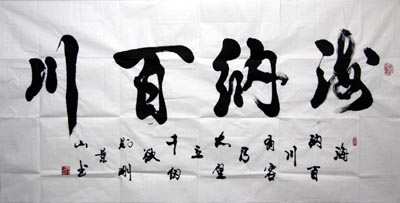 海纳百川
海
纳百
川
有容
乃
大壁
立
千仞
欲
则刚
景
山书